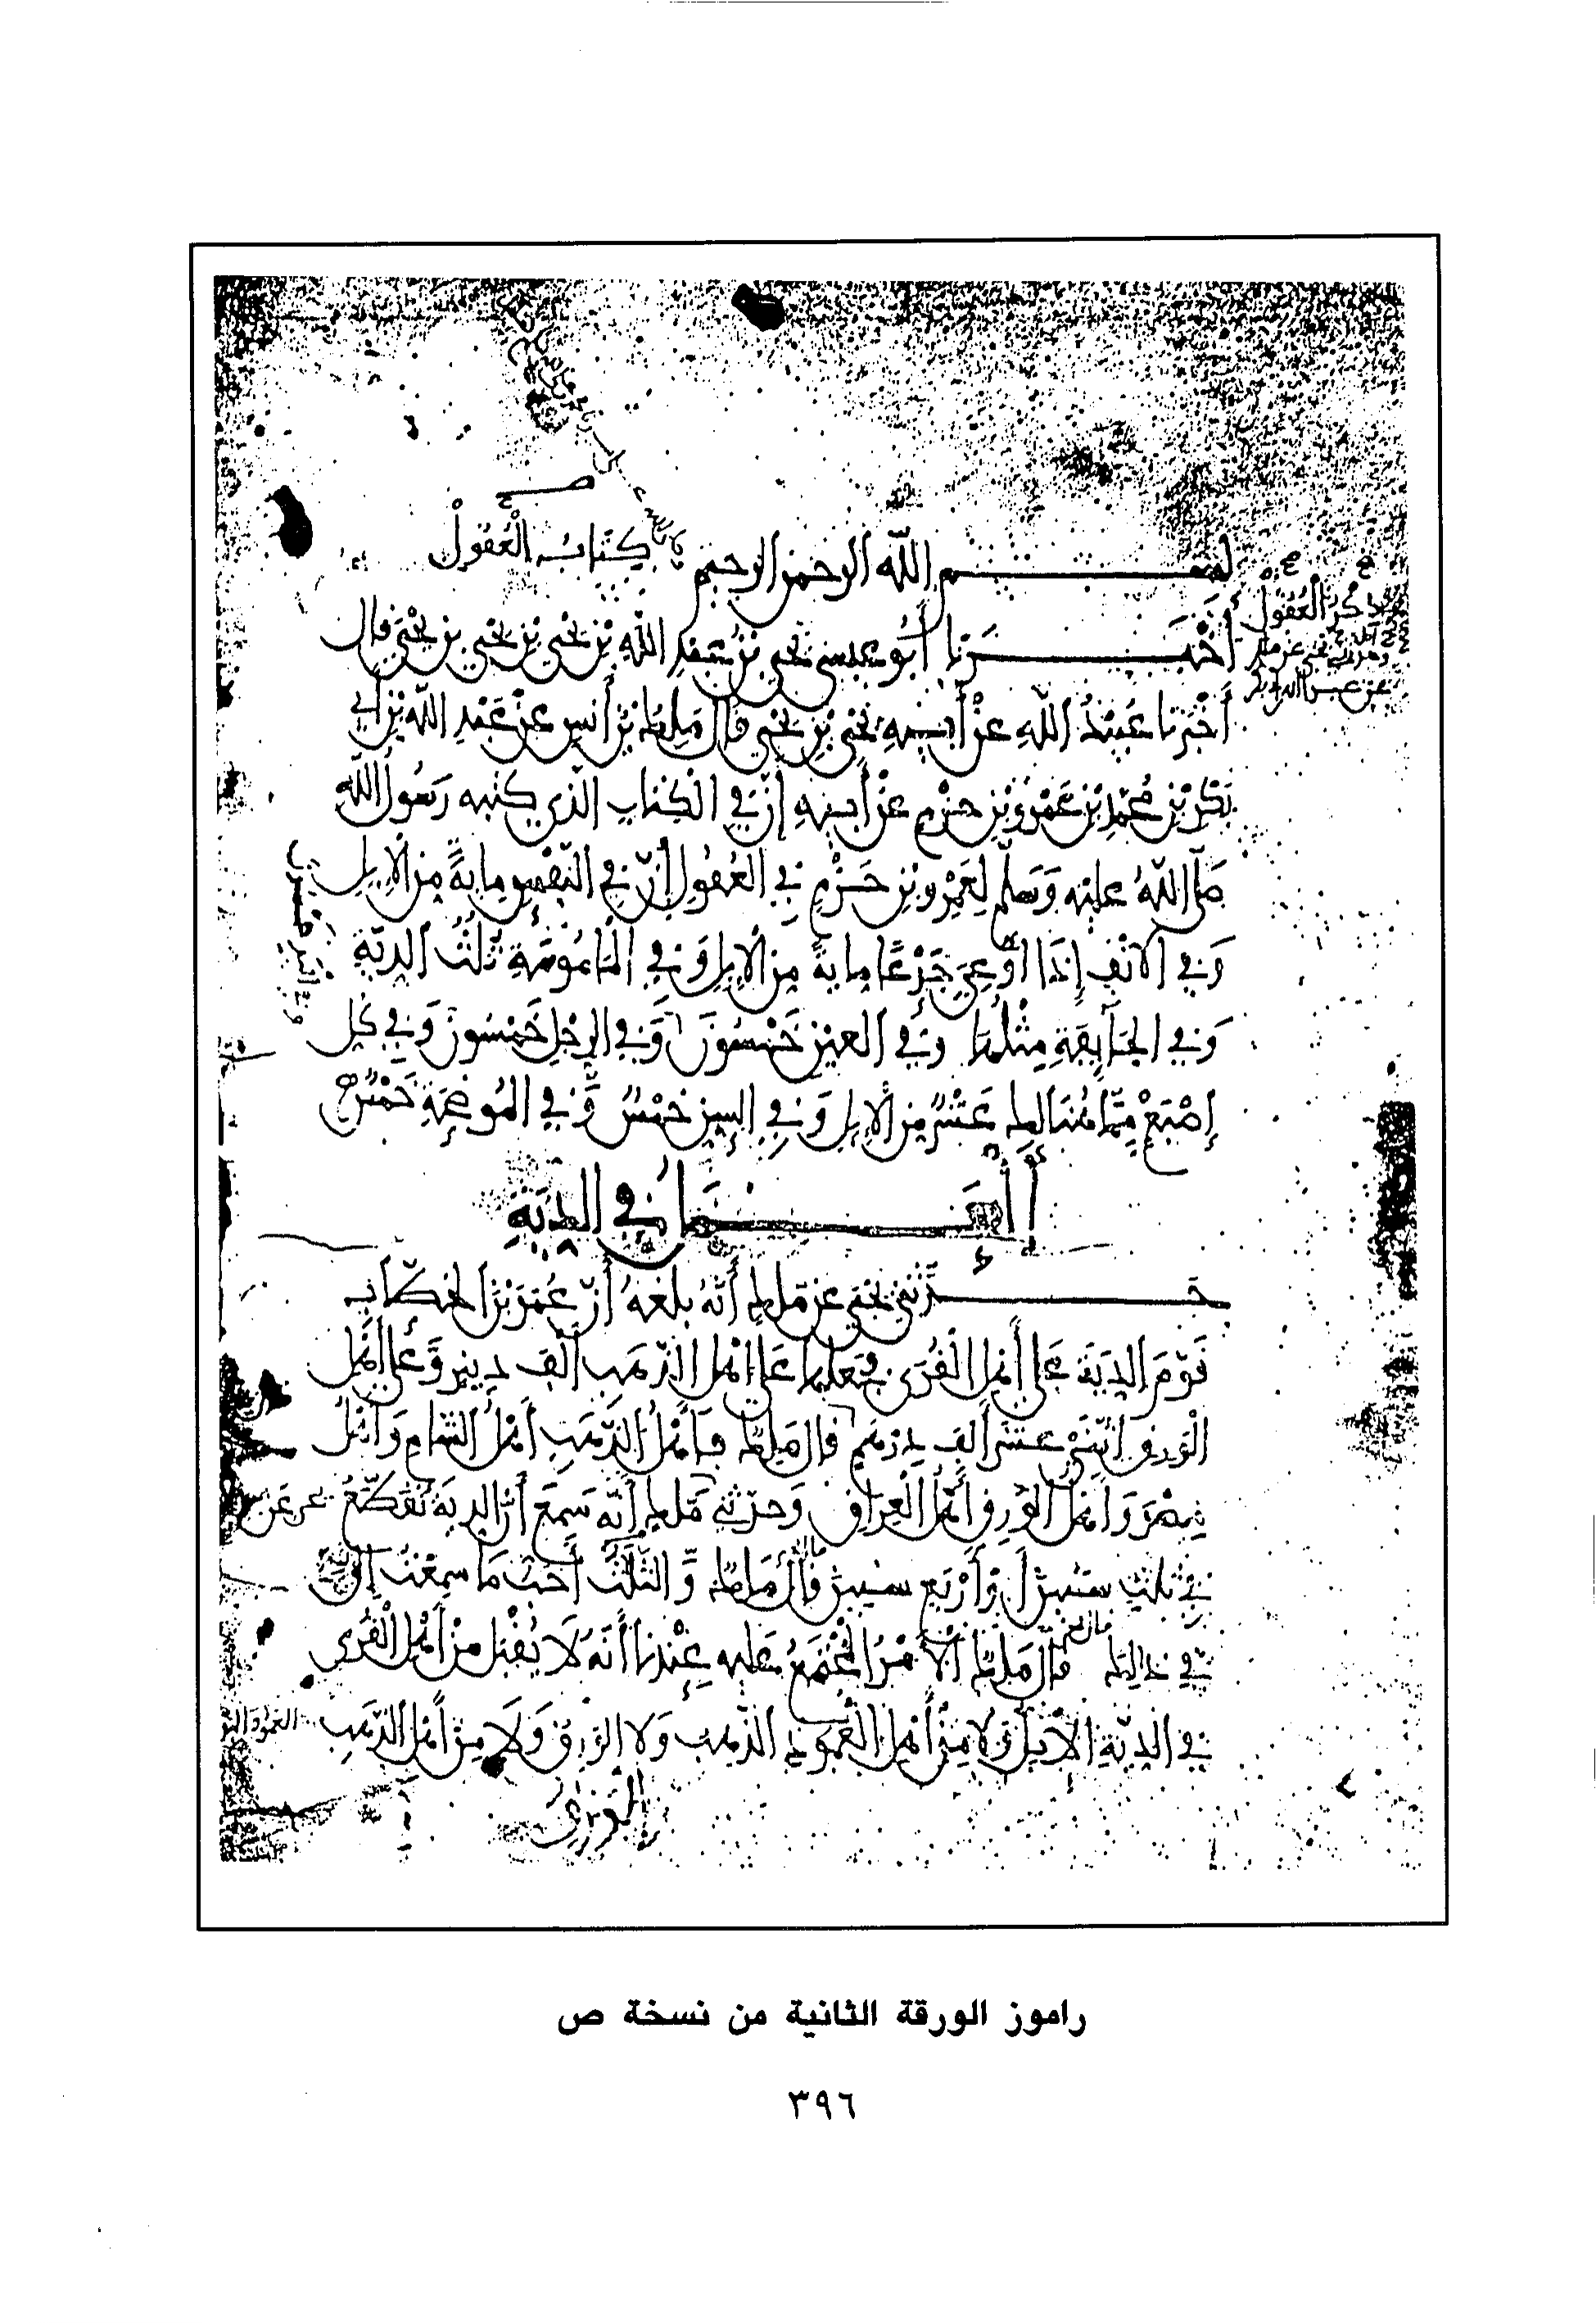 بسم الله الرحمن الرحيم كتاب العقول
ذكر العقول
أخبرنا أبو عيسى يحيى بن عبد الله بن يحيى بن يحيى بن يحيى قال
أخبرنا عبيد الله عن أبيه يحيى بن يحيى قال ملك بن أنس عن عبد الله بن أبي
بكر بن محمد بن عمرو بن حزم عن أبيه إن في الكتاب الذي كتبه رسول الله
صلى الله عليه وسلم لعمرو بن حزم في العقول أن في النفس ماية من الإبل
وفي الأنف إذا أوعي جدعا ماية من الإبل وفي المامومة ثلث الدية
وفي الجايفة مثلها وفي العين خمسون وفي الرجل خمسون وفي كل
إصبع مما هنالك عشر من الإبل وفي السن خمس وفي الموضحة خمس
العمل في الدية
حدثني يحيى عن ملك أنه بلغه أن عمر بن الخطاب
قوم الدية على أهل القرى فجعلها على أهل الذهب ألف دينر وعلى أهل
الورق اثني عشر ألف درهم قال ملك فأهل الذهب أهل الشام وأهل
مصر وأهل الورق أهل العراق وحدثني ملك أنه سمع أن الدية تقطع
في ثلث سنين أو أربع سنين قال ملك والثلث أحب ما سمعت إلي
في ذلك قال ملك الأمر المجتمع عليه عندنا أنه لا يقبل من أهل القرى
في الدية الإبل ولا من أهل العمود الذهب ولا الورق ولا من أهل الذهب
الورق
راموز الورقة الثانية من نسخة ص
٣٩٦